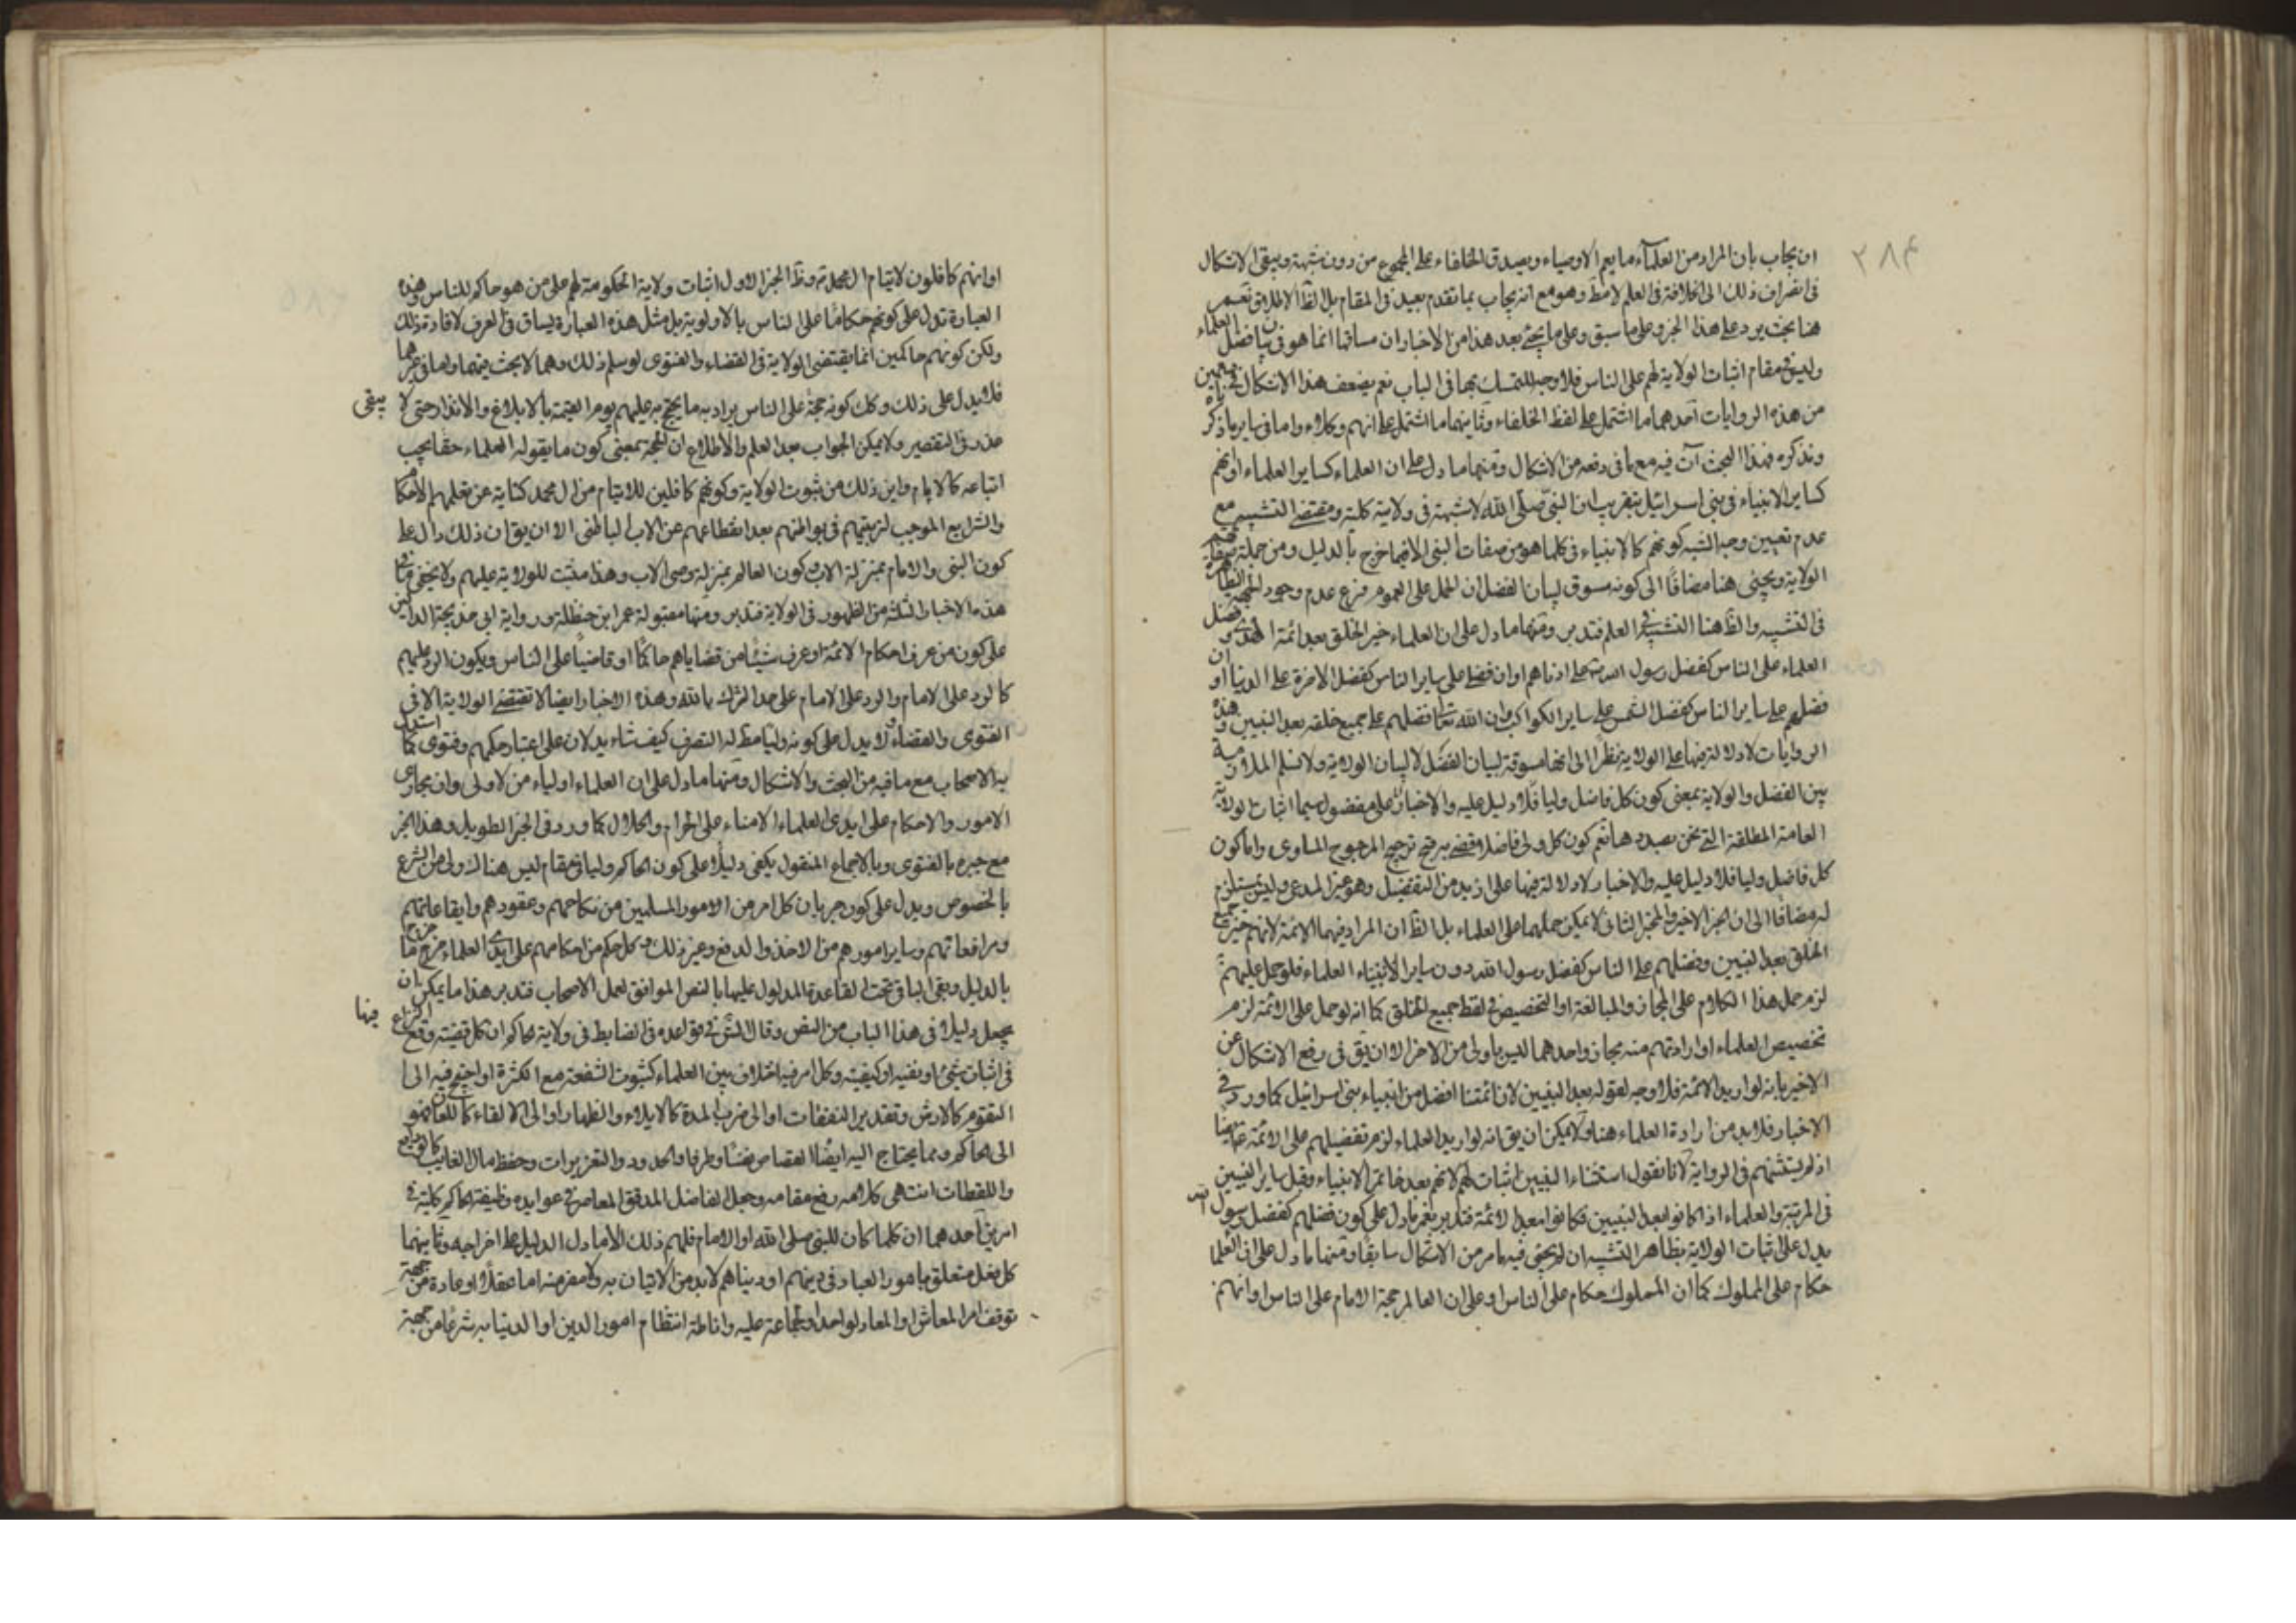 ٣٨۴
ان يجاب بان المراد من العلمآء ما يعم الاوصياء ويصدق الخلفاء على المجموع من دون شبهة ويبقى الاشكال
فى انصراف ذلك الى الخلافة فى العلم لا مط وهو مع انه يجاب بما تقدم بعيد فى المقام بل الظ الاطلاق نعم
هنا بحث يرد على هذا الخبر وعلى ما سبق وعلى ما يجئ بعد هذا من الاخبار ان مساقها انما هو فى بيان فضل العلماء
وليس فى مقام اثبات الولاية لهم على الناس فلا وجه للتمسك بها فى الباب نعم يضعف هذا الاشكال فى
من هذه الروايات احدهما ما اشتمل على لفظ الخلفاء وثانيهما ما اشتمل على انهم وكلاء واما فى ساير ما ذكر
ونذكره فهذا البحث آت فيه مع ما فى دفعه من الاشكال ومنها ما دل على ان العلماء كساير العلماء او انهم
كساير الانبياء فى بنى اسرائيل بتقريب ان النبى صلى الله لا شبهة فى ولايته كلية ومقتضى التشبيه مع
عدم تعيين وجه الشبه كونهم كالانبياء فى كلما هو من صفات النبى الا فيما خرج بالدليل ومن جملة
الولاية ويجئ هنا مضافًا الى كونه مسوق لبيان الفضل ان الحمل على العموم فرع عدم وجود الجهة الظاهرة
فى التشبيه والظ هنا التشبيه فى العلم فتدبر ومنها ما دل على ان العلماء خير الخلق بعد ائمة الهدى وفضل
العلماء على الناس كفضل رسول الله على ادناهم او ان فضل على ساير الناس كفضل الاخرة على الدنيا او ان
فضلهم على ساير الناس كفضل الشمس على ساير الكواكب وان الله تعالى فضلهم على جميع خلقه بعد النبيين وهذه
الروايات لا دلالة فيها على الولاية نظرا الى انها مسوقة لبيان الفضل لا لبيان الولاية ولا نسلم الملازمة
بين الفضل والولاية بمعنى كون كل فاضل وليا فلا دليل عليه والاخبار على مفضول سيما اثبات الولاية
العامة المطلقة التى نحن بصدده هنا نعم كون كل ولى فاضلا قضى به قبح ترجيح المرجوح المساوى واما كون
كل فاضل وليا فلا دليل عليه والاخبار لا دلالة فيها على ازيد من التفضيل وهو غير المدعى وليس بمستلزم
له مضافًا الى ان الخبر الاخير والخبر الثانى لا يمكن حملهما على العلماء بل الظ ان المراد فيهما الائمة لانهم خير جميع
الخلق بعد النبيين وفضلهم على الناس كفضل رسول الله دون ساير الانبياء العلماء فلو حمل عليهم
لزم حمل هذا الكلام على المجاز والمبالغة او التخصيص فى لفظ جميع الخلق كما انه لو حمل على الائمة لزم
تخصيص العلماء او ارادتهم منه مجاز واحدهما ليس باولى من الاخر الا ان يق فى رفع الاشكال عن
الاخير بانه لو اريد الائمة فلا وجه لقوله بعد النبيين لان ائمتنا افضل من انبياء بنى اسرائيل كما ورد فى
الاخبار فلابد من ارادة العلماء هنا ولا يمكن ان يق انه لو اريد العلماء لزم تفضيلهم على الائمة
اذ لم يستثنهم فى الرواية لانا نقول استثناء النبيين اثبات لهم لانهم بعد خاتم الانبياء وقبل ساير النبيين
فى المرتبة والعلماء اذا كانوا بعد النبيين فكانوا بعد الائمة فتدبر نعم ما دل على كون فضلهم كفضل رسول الله
يدل على اثبات الولاية بظاهر التشبيه ان لم يجئ فيه ما مر من الاشكال سابقًا ومنها ما دل على ان العلما
حكام على الملوك كما ان الملوك حكام على الناس او على ان العالم حجة الامام على الناس او انهم
او انهم كافلون لايتام ال محمد وظ الخبر الاول اثبات ولاية الحكومة لهم على من هو حاكم للناس وهذه
العبارة تدل على كونهم حكامًا على الناس بالاولوية بل مثل هذه العبارة يساق فى العرف لافادة ذلك
ولكن كونهم حاكمين انما يقتضى الولاية فى القضاء والفتوى لو سلم ذلك وهما لا بحث فيهما واما فى غيرهما
فلا يدل على ذلك وكك كونه حجة على الناس يراد به ما يحتج به عليهم يوم القيمة بالابلاغ والانذار حتى لا يبقى
عذر فى التقصير ولا يمكن الجواب بعد العلم والاطلاع ان الحجة بمعنى كون ما يقوله العلماء حقا يجب
اتباعه كالامام واين ذلك من ثبوت الولاية وكونهم كافلين للايتام من ال محمد كناية عن تعلمهم الاحكا
والشرايع الموجب لتربيتهم فى بواطنهم بعد انقطاعهم عن الاب الباطنى الا ان يق ان ذلك دال على
كون النبى والامام بمنزلة الاب وكون العالم بمنزلة وصى الاب وهذا مثبت للولاية عليهم ولا يخفى ما فى
هذه الاخبار الثلثة من الظهور فى الولاية فتدبر ومنها مقبولة عمر ابن حنظلة ورواية ابى خديجة الدالتين
على كون من عرف احكام الائمة او عرف شيئًا من قضاياهم حاكمًا او قاضيًا على الناس ويكون الرد عليهم
كالرد على الامام والرد على الامام على حد الشرك بالله وهذه الاخبار ايضا لا تقتضى الولاية الا فى
الفتوى والقضاء ولا يدل على كونه وليًا مط له التصرف كيف شاء يدلان على اعتبار حكمهم وفتوى كما استدل
به الاصحاب مع ما فيه من البحث والاشكال ومنها ما دل على ان العلماء اولياء من لا ولى وان مجارى
الامور والاحكام على ايدى العلماء الامناء على الحرام والحلال كما ورد فى الخبر الطويل وهذا الخبر
مع جبره بالفتوى وبالاجماع المنقول يكفى دليلًا على كون الحاكم وليا فى مقام ليس هناك ولى من الشرع
بالخصوص ويدل على كون جريان كل امر من الامور المسلمين من نكاحهم وعقودهم وايقاعاتهم
ومرافعاتهم وساير امورهم من الاخذ والدفع وغير ذلك وكل حكم من احكامهم على ايدى العلماء خرج ما خرج
بالدليل وبقى الباقى تحت القاعدة المدلول عليها بالنص الموافق لعمل الاصحاب فتدبر هذا ما يمكن ان
يجعل دليلًا فى هذا الباب من النص وقال الش فى قواعده فى الضابط فى ولاية الحاكم ان كل قضية وقع النزاع فيها
فى اثبات شئ او نفيه او كيفيته وكل امر فيه اختلاف بين العلماء كثبوت الشفعة مع الكثرة او احتيج فيه الى
التقويم كالارش وتقدير النفقات او الى ضرب المدة كالايلاء والظهار او الى الالقاء كاللعان
الى الحاكم ومما يحتاج اليه ايضًا القصاص نفسًا وطرفا والحدود والتعزيرات وحفظ مال الغايب كالودايع
واللقطات انتهى كلامه رفع مقامه وجعل الفاضل المدقق المعاصر فى عوايده وظيفة الحاكم كلية فى
امرين احدهما ان كلما كان للنبى صلى الله او الامام فلهم ذلك الا ما دل الدليل على اخراجه وثانيهما
كل فعل متعلق بامور العباد فى دينهم او دنياهم لابد من الاتيان به ولا مفر منه اما عقلًا او عادة من جهة
توقف امر المعاش او المعاد لواحد او لجماعة عليه واناطة انتظام امور الدين او الدنيا به شرعًا من جهة